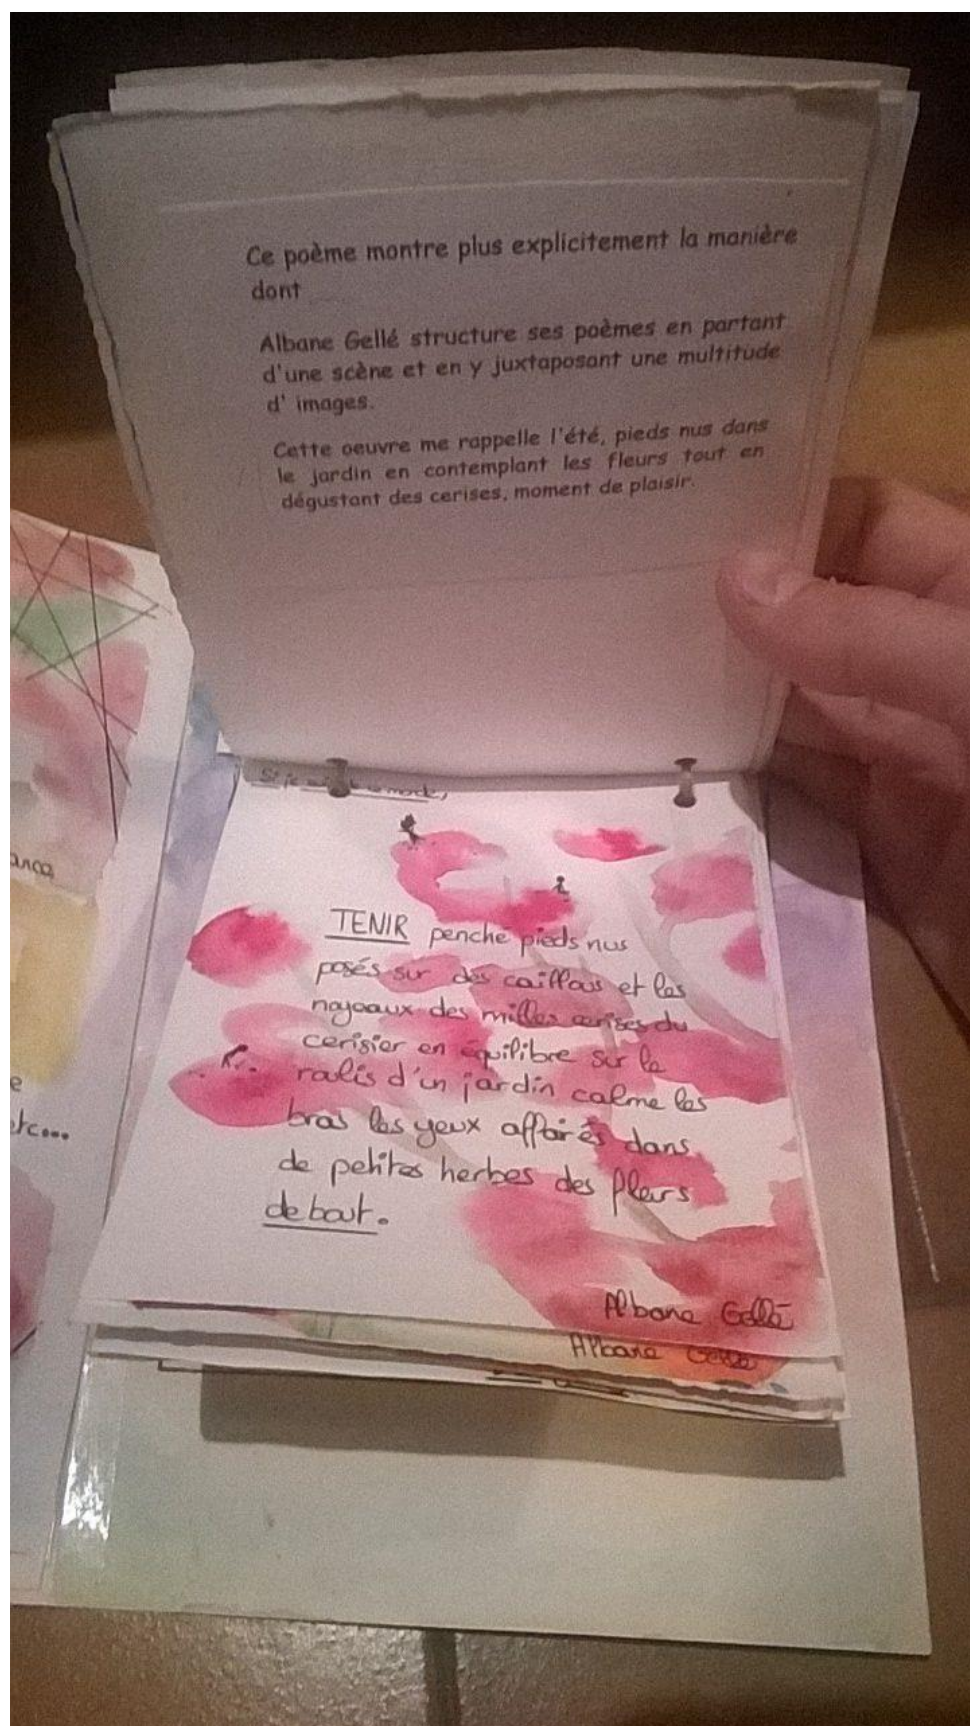 Ce poème montre plus explicitement la manière
dont
Albane Gellé structure ses poèmes en partant
d'une scène et en y juxtaposant une multitude
d' images.
Cette oeuvre me rappelle l'été, pieds nus dans
le jardin en contemplant les fleurs tout en
dégustant des cerises, moment de plaisir.
TENIR penche pieds nus
posés sur des cailloux et les
noyaux des milles cerises du
cerisier en équilibre sur le
rail d'un jardin calme les
bras les yeux affairés dans
de petites herbes des fleurs
debout.
Albane Gellé
Albane Gellé